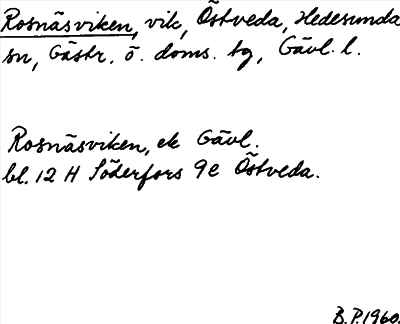 Rosnäsviken, vik, Östveda, Hedesunda
sn, Gästr. ö. doms. tg, Gävl. l.
Rosnäsviken, ek Gävl.
bl. 12 H Söderfors 9e Östveda.
B.P. 1960.